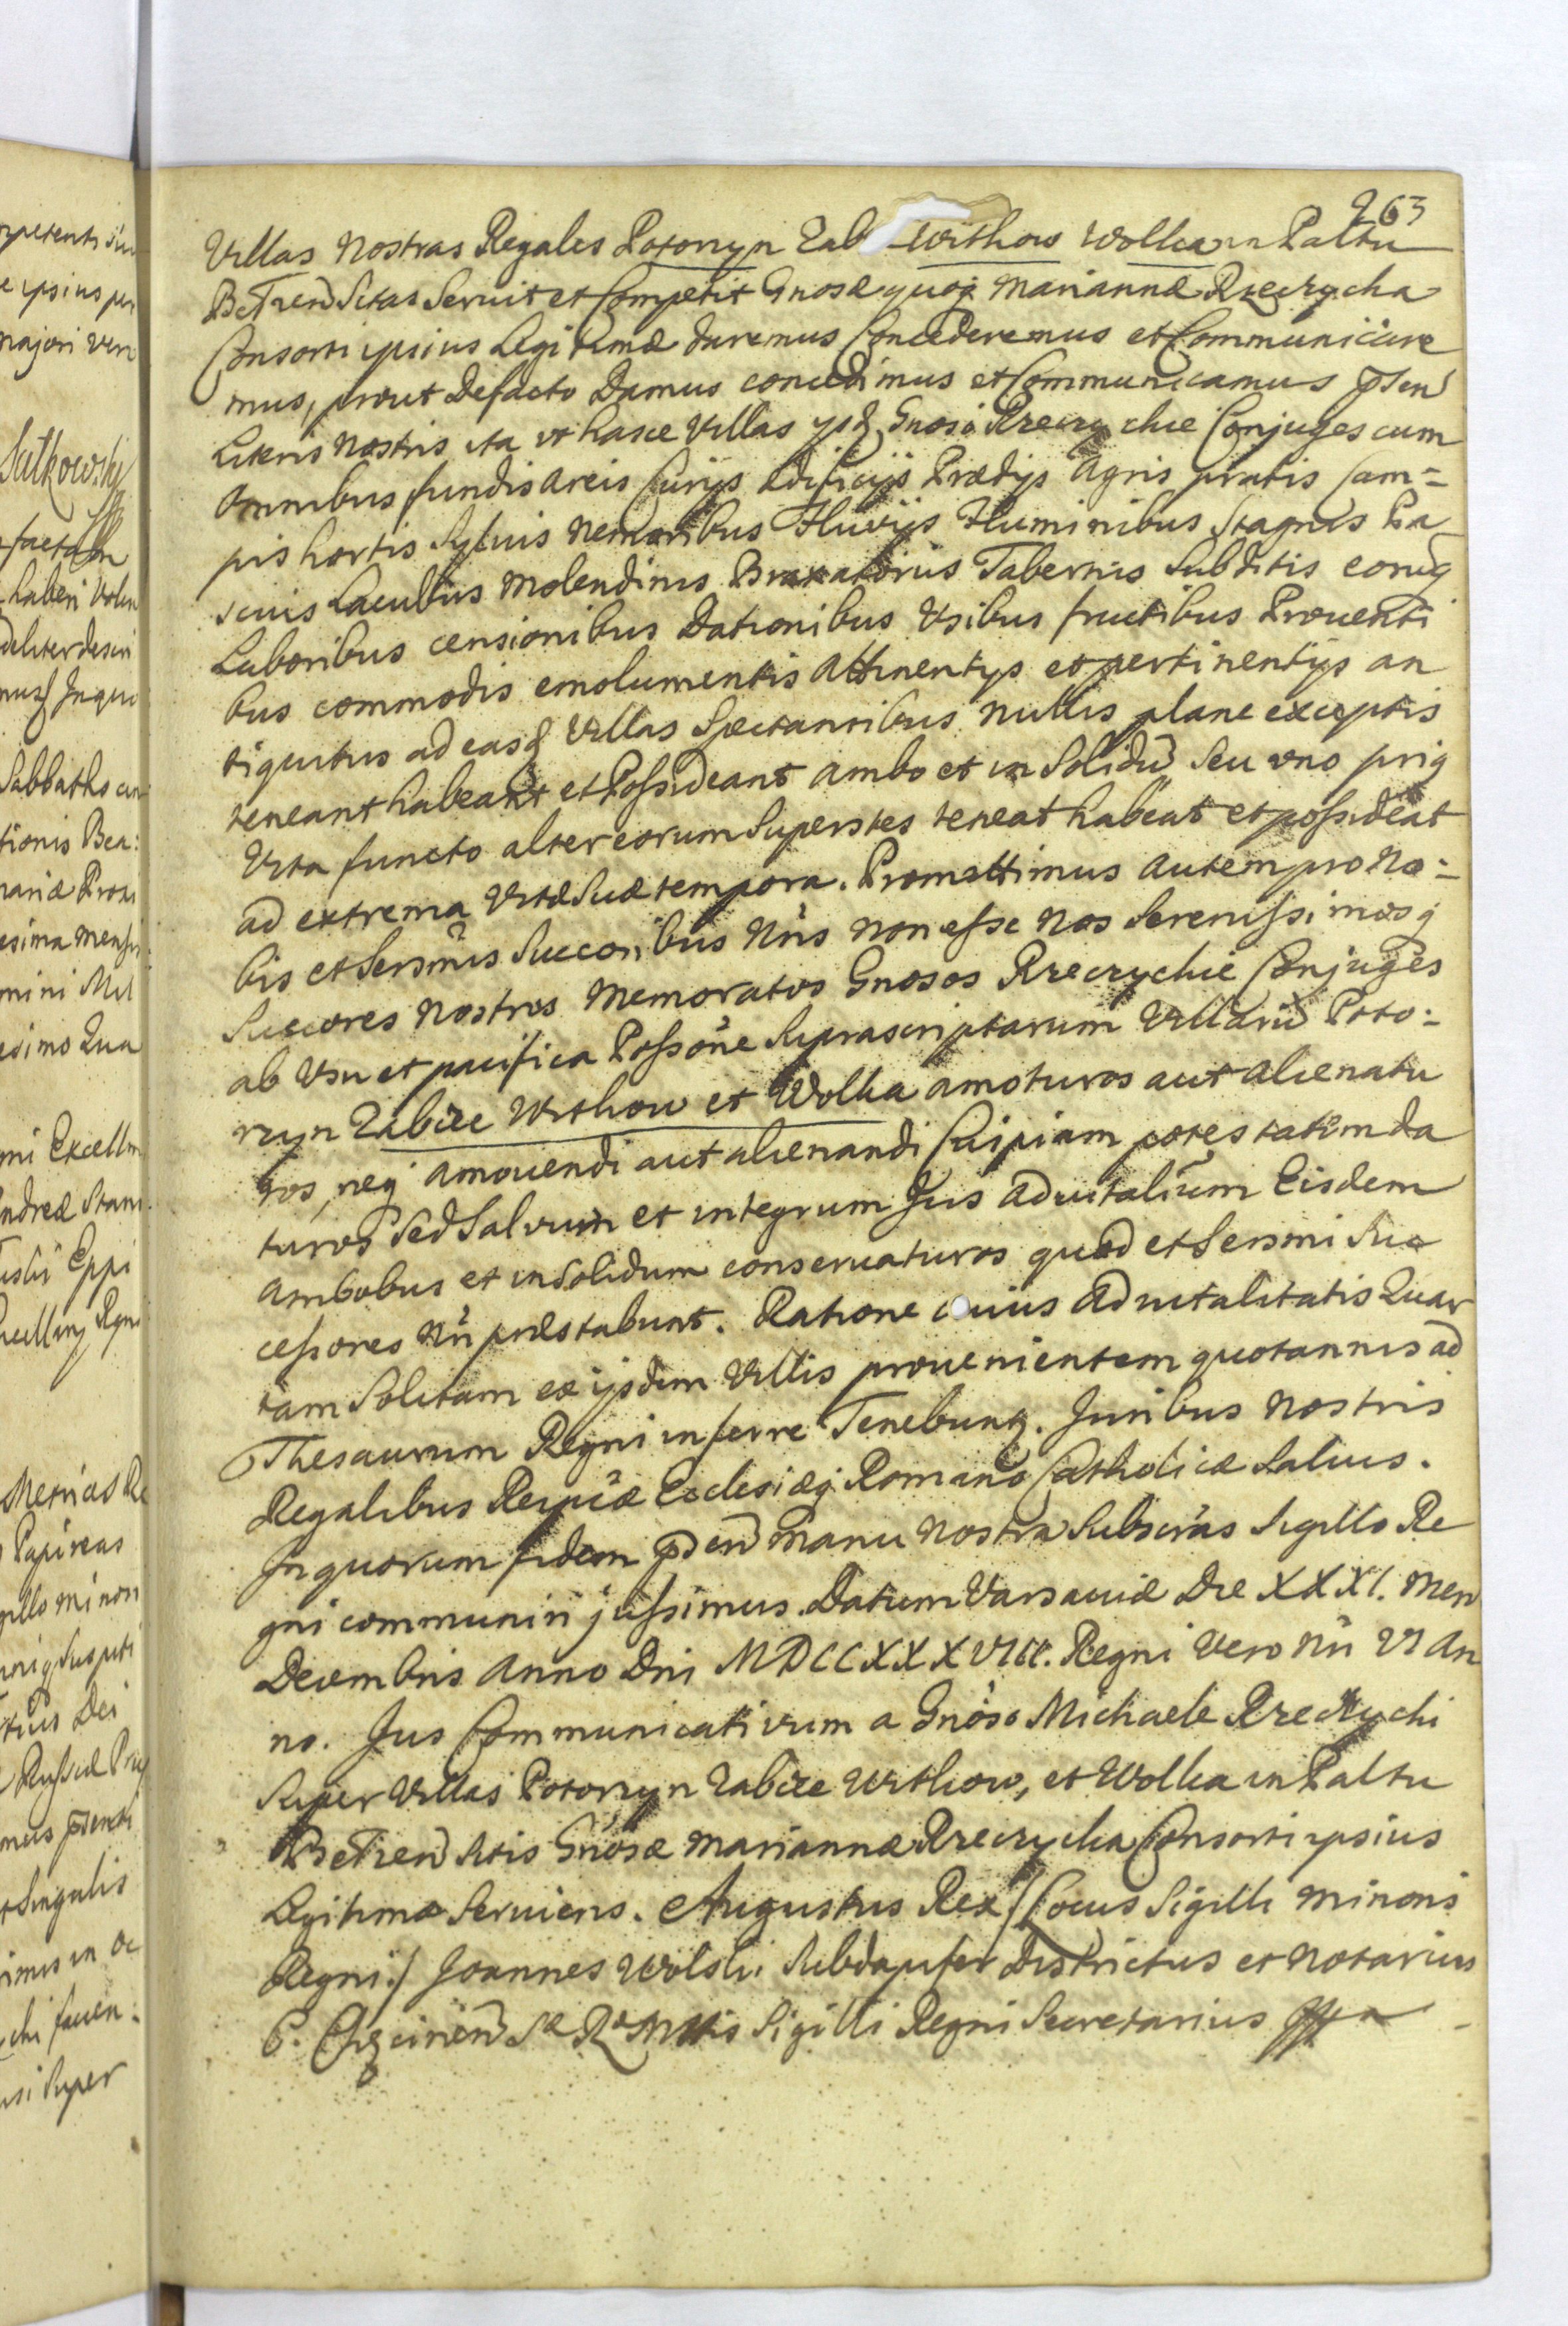 263
Villas nostras Regales Potorzyn Zab Withow Wolka in Paltu
BeŁzeñ Sitas Servit et Competit Gnosæ quoq Mariannæ Rzeczycka
Consorti ipsius Legitimæ daremus Concederemus et Communicare
mus, prout Defacto Damus concedimus et Communicamus pñten
Literis nostris ita vt hasce Villas ysd Gnosi Rzeczyckie Conjuges cum
omnibus fundis areis Curijs ædificijs Prædijs Agris pratis Cam=
pis hortis Syluis nemoribus Fluvijs Fluminibus Stagnis Pa
scuis Lacubus molendinis Braxatorijs Tabernis Subditis eorūq
Laboribus censionibus Dationibus Vsibus fructibus Prouenti
bus commodis emolumentis attinentijs et pertinentijs an
tiquitus ad easd Villas Spectantibus nullis plane exceptis
teneant habeant et Possideant ambo et in Solidū Seu vno priq
Vita functo alter eorum Superstes teneat habeat et possideat
ad extrema Vitæ Suæ tempora. Promittimus autem pro No=
bis et Serenis Succoribus Nris non esse nos Serenissimosq
Succores nostros memoratos Gnosos Rzeczyckie Conjuges
ab Vsu et pacifica Possone Suprascriptarum Villarū Poto=
rzyn Zabcze Withow et Wolka amoturos aut alienatu
ros, neq amouendi aut alienandi Cuipiam potestatem da
turos Sed Salvum et integrum Jus aduitalium Eisdem
Ambobus et in Solidum conservaturos quod et Sersmi Suc
cessores Nri præstabunt. Ratione cuius aduitalitatis Quar
tam Solitam ex ijsdem Villis prouenientem quotannis ad
Thesaurum Regni inferre Tenebunt. Juribus nostris
Regalibus Reipcæ Ecclesiæq Romano Catholicæ Saluis.
In quorum fidem pñen manu nostra Subscras Sigillo Re
gni communiri jussimus. Datum Varsauiæ Die XXXI. Men
Decembris Anno Dni MDCCXXXVIII. Regni Vero Nri VI An
no. Jus Communicativum a Gnoso Michaele Rzeczycki
Super Villas Potorzyn Zabcze Withow, et Wolka in Paltu
BeŁzeñ Sitis Gnosæ Mariannæ Rzeczycka Consorti ipsius
Legitimæ Serviens. Augustus Rex /Locus Sigilli minoris
Regni:/ Joannes Wolski Subdapifer Districtus et Notarius
C. Sæ Ræ Mttis Sigilli Regni Secretarius